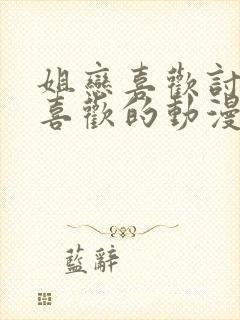 姐戀喜歡討
喜歡的動漫
藍辭